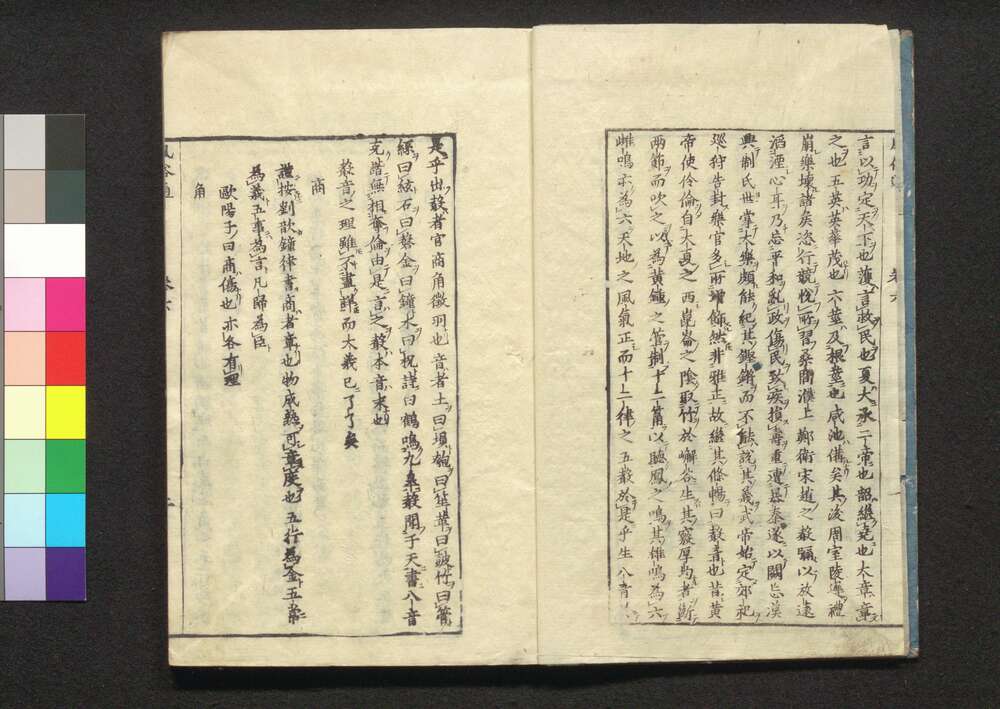 言以功定天下也護言救民也夏大承二帝也韶繼堯也大章章
之也五英英華茂也六莖及根莖也咸池備矣其後周室陵遲禮
崩樂壞諸矦恣行競悅所習桑間濮上鄭衛宋趙之聲彌以放遠
滔湮心耳乃忘平和亂政傷民致疾損壽重遭暴秦遂以闕忘漢
興制氏世掌大樂頗能紀其鏗鏘而不能說其義武帝始定郊祀
巡狩告封樂官多所增飾然非雅正故繼其條暢曰聲音也昔黃
帝使伶倫自大夏之西崑崙之陰取竹於嶰谷生其竅厚均者斷
兩節而吹之以為黃鍾之管制十二筩以聽鳳之鳴其雄鳴為六
雌鳴亦為六天地之風氣正而十二律之五聲於是乎生八音於
是乎出聲者宮商角徵羽也音者土曰塤匏曰笙革曰鼓竹曰管
絲曰絃石曰磬金曰鐘木曰柷謹曰鶴鳴九皋聲聞于天書八音
克諧無相奪倫由是言之聲本音末也
聲音之理雖不盡詳而大義已了了矣
商
謹按劉歆鐘律書商者章也物成熟可章度也五行為金五常
為義五事為言凡歸為臣
歐陽子曰商傷也亦各有理
角
卷六